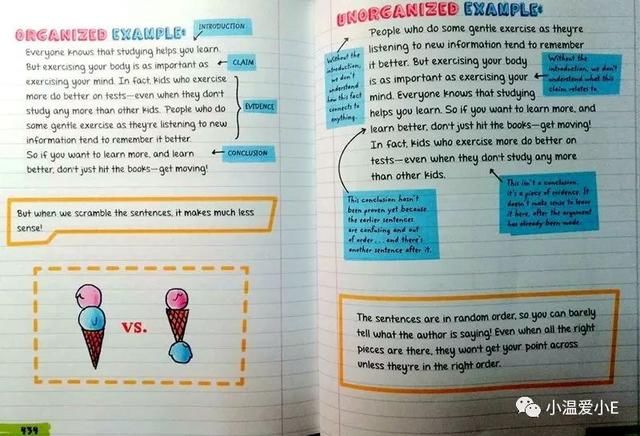 ORGANIZED EXAMPLE:
INTRODUCTION
Everyone knows that studying helps you learn.
But exercising your body is as important as
CLAIM
exercising your mind. In fact, kids who exercise
more do better on tests—even when they don't
study any more than other kids. People who do
EVIDENCE
some gentle exercise as they're listening to new
information tend to remember it better.
So if you want to learn more, and learn
CONCLUSION
better, don't just hit the books—get moving!
But when we scramble the sentences, it makes much less
sense!
vs.
434
UNORGANIZED EXAMPLE:
People who do some gentle exercise as they're
listening to new information tend to remember
it better. But exercising your body
is as important as exercising your
mind. Everyone knows that studying
helps you learn. So if you want to learn more, and
learn better, don't just hit the books—get moving!
In fact, kids who exercise more do better on
tests—even when they don't study any more
than other kids.
Without the
introduction,
we don't
understand
how this fact
connects to
anything.
Without the
introduction, we don't
understand what this
claim relates to.
This conclusion hasn't
been proven yet because
the earlier sentences
are confusing and out
of order... and there's
another sentence after it.
This isn't a conclusion,
it's a piece of evidence. It
doesn't make sense to leave
it here, after the argument
has already been made.
The sentences are in random order, so you can barely
tell what the author is saying! Even when all the right
pieces are there, they won't get your point across
unless they're in the right order.
小温爱小E